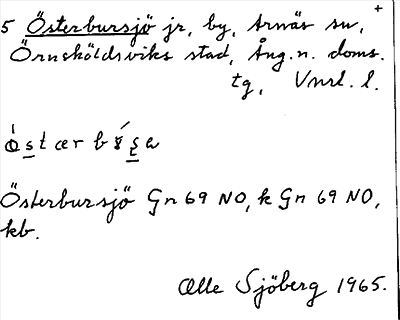 +
5 Österbursjö jr, by, Arnäs sn,
Örnsköldsviks stad, Ång. n. doms.
tg, Vnrl. l.
Österbursjö Gn 69 NO, k Gn 69 NO,
kb.
Olle Sjöberg 1965.